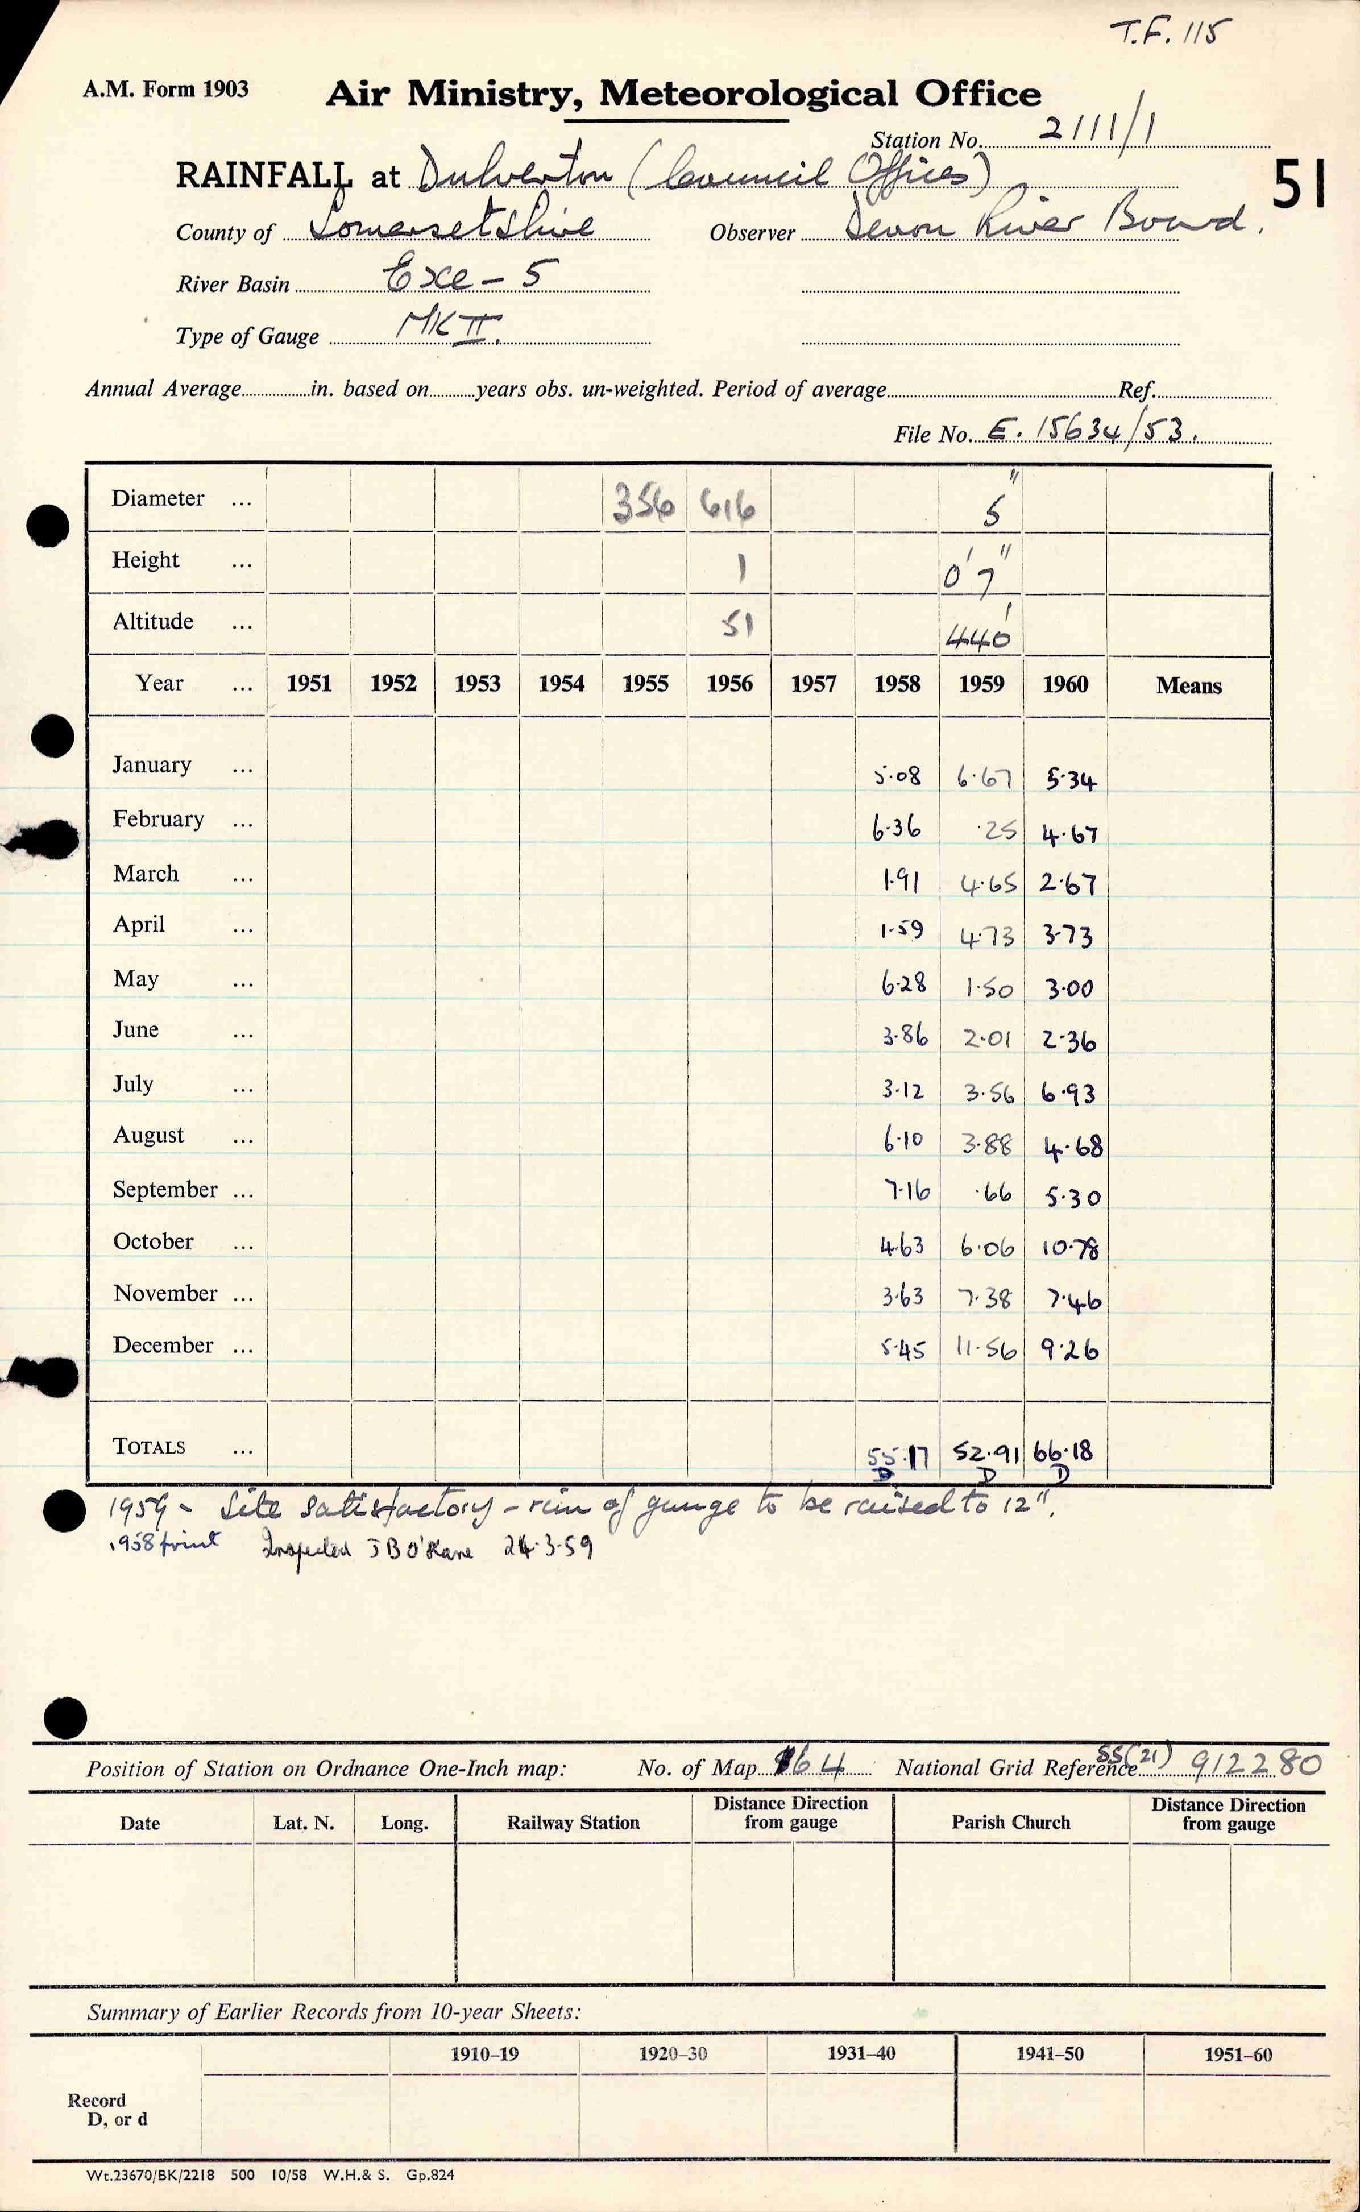 T.F. 115
A.M. Form 1903 Air Ministry, Meteorological Office
Station No. 2111/1
RAINFALL at Dulverton (Council Offices) 51
County of Somersetshire Observer Devon River Board.
River Basin Exe - 5
Type of Gauge MK II.
Annual Average in. based on years obs. un-weighted. Period of average Ref.
File No. E. 15634/53.
Diameter ... 356 616 5"
Height ... 1 0' 7"
Altitude ... 51 440'
Year ... 1951 1952 1953 1954 1955 1956 1957 1958 1959 1960 Means
January ... 5.08 6.67 5.34
February ... 6.36 .25 4.67
March ... 1.91 4.65 2.67
April ... 1.59 4.73 3.73
May ... 6.28 1.50 3.00
June ... 3.86 2.01 2.36
July ... 3.12 3.56 6.93
August ... 6.10 3.88 4.68
September ... 7.16 .66 5.30
October ... 4.63 6.06 10.78
November ... 3.63 7.38 7.46
December ... 5.45 11.56 9.26
TOTALS ... 55.17 52.91 66.18
D D D
1959 - Site satisfactory - rim of gauge to be raised to 12".
1958 print Inspected J B O'Kane 24.3.59
Position of Station on Ordnance One-Inch map: No. of Map 164 National Grid Reference SS(21) 912280
Date Lat. N. Long. Railway Station Distance Direction from gauge Parish Church Distance Direction from gauge
Summary of Earlier Records from 10-year Sheets:
1910–19 1920–30 1931–40 1941–50 1951–60
Record
D, or d
Wt.23670/BK/2218 500 10/58 W.H.& S. Gp.824